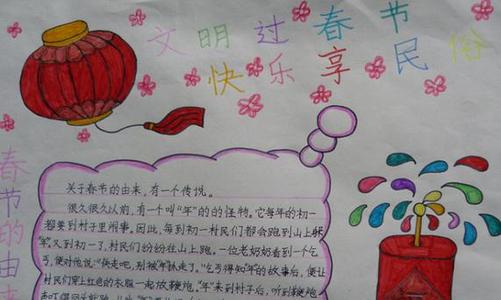 文明过春节
快乐享民俗
春节的由来
关于春节的由来,有一个传说。
很久很久以前,有一个叫“年”的的怪物。它每年的初一
都要到村子里闹事。因此,每到初一村民们都会跑到山上躲
年。又到初一了,村民们纷纷往山上跑。一位老奶奶看到一个乞
丐,便对他说:“快走吧,别被“年”抓走了。”乞丐得知“年”的故事后,便让
村民们穿上红色的衣服一起放鞭炮。“年”来到村子后,听到鞭炮